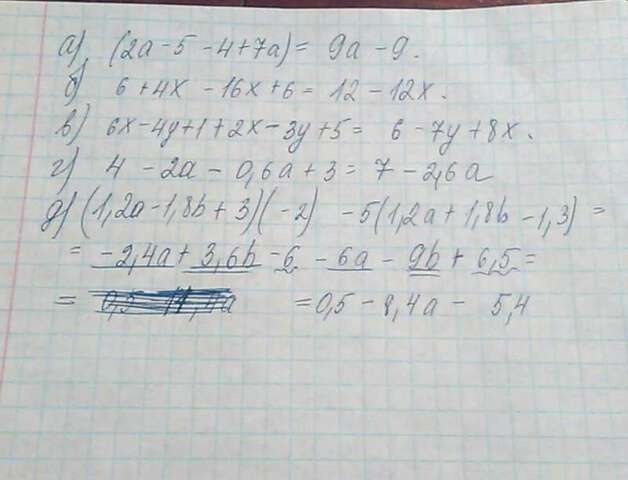 а) (2a - 5 - 4 + 7a) = 9a - 9.
б) 6 + 4x - 16x + 6 = 12 - 12x.
в) 6x - 4y + 1 + 2x - 3y + 5 = 6 - 7y + 8x.
г) 4 - 2a - 0,6a + 3 = 7 - 2,6a
д) (1,2a - 1,8b + 3)(-2) - 5(1,2a + 1,8b - 1,3) =
= -2,4a + 3,6b - 6 - 6a - 9b + 6,5 =
= = 0,5 - 8,4a - 5,4